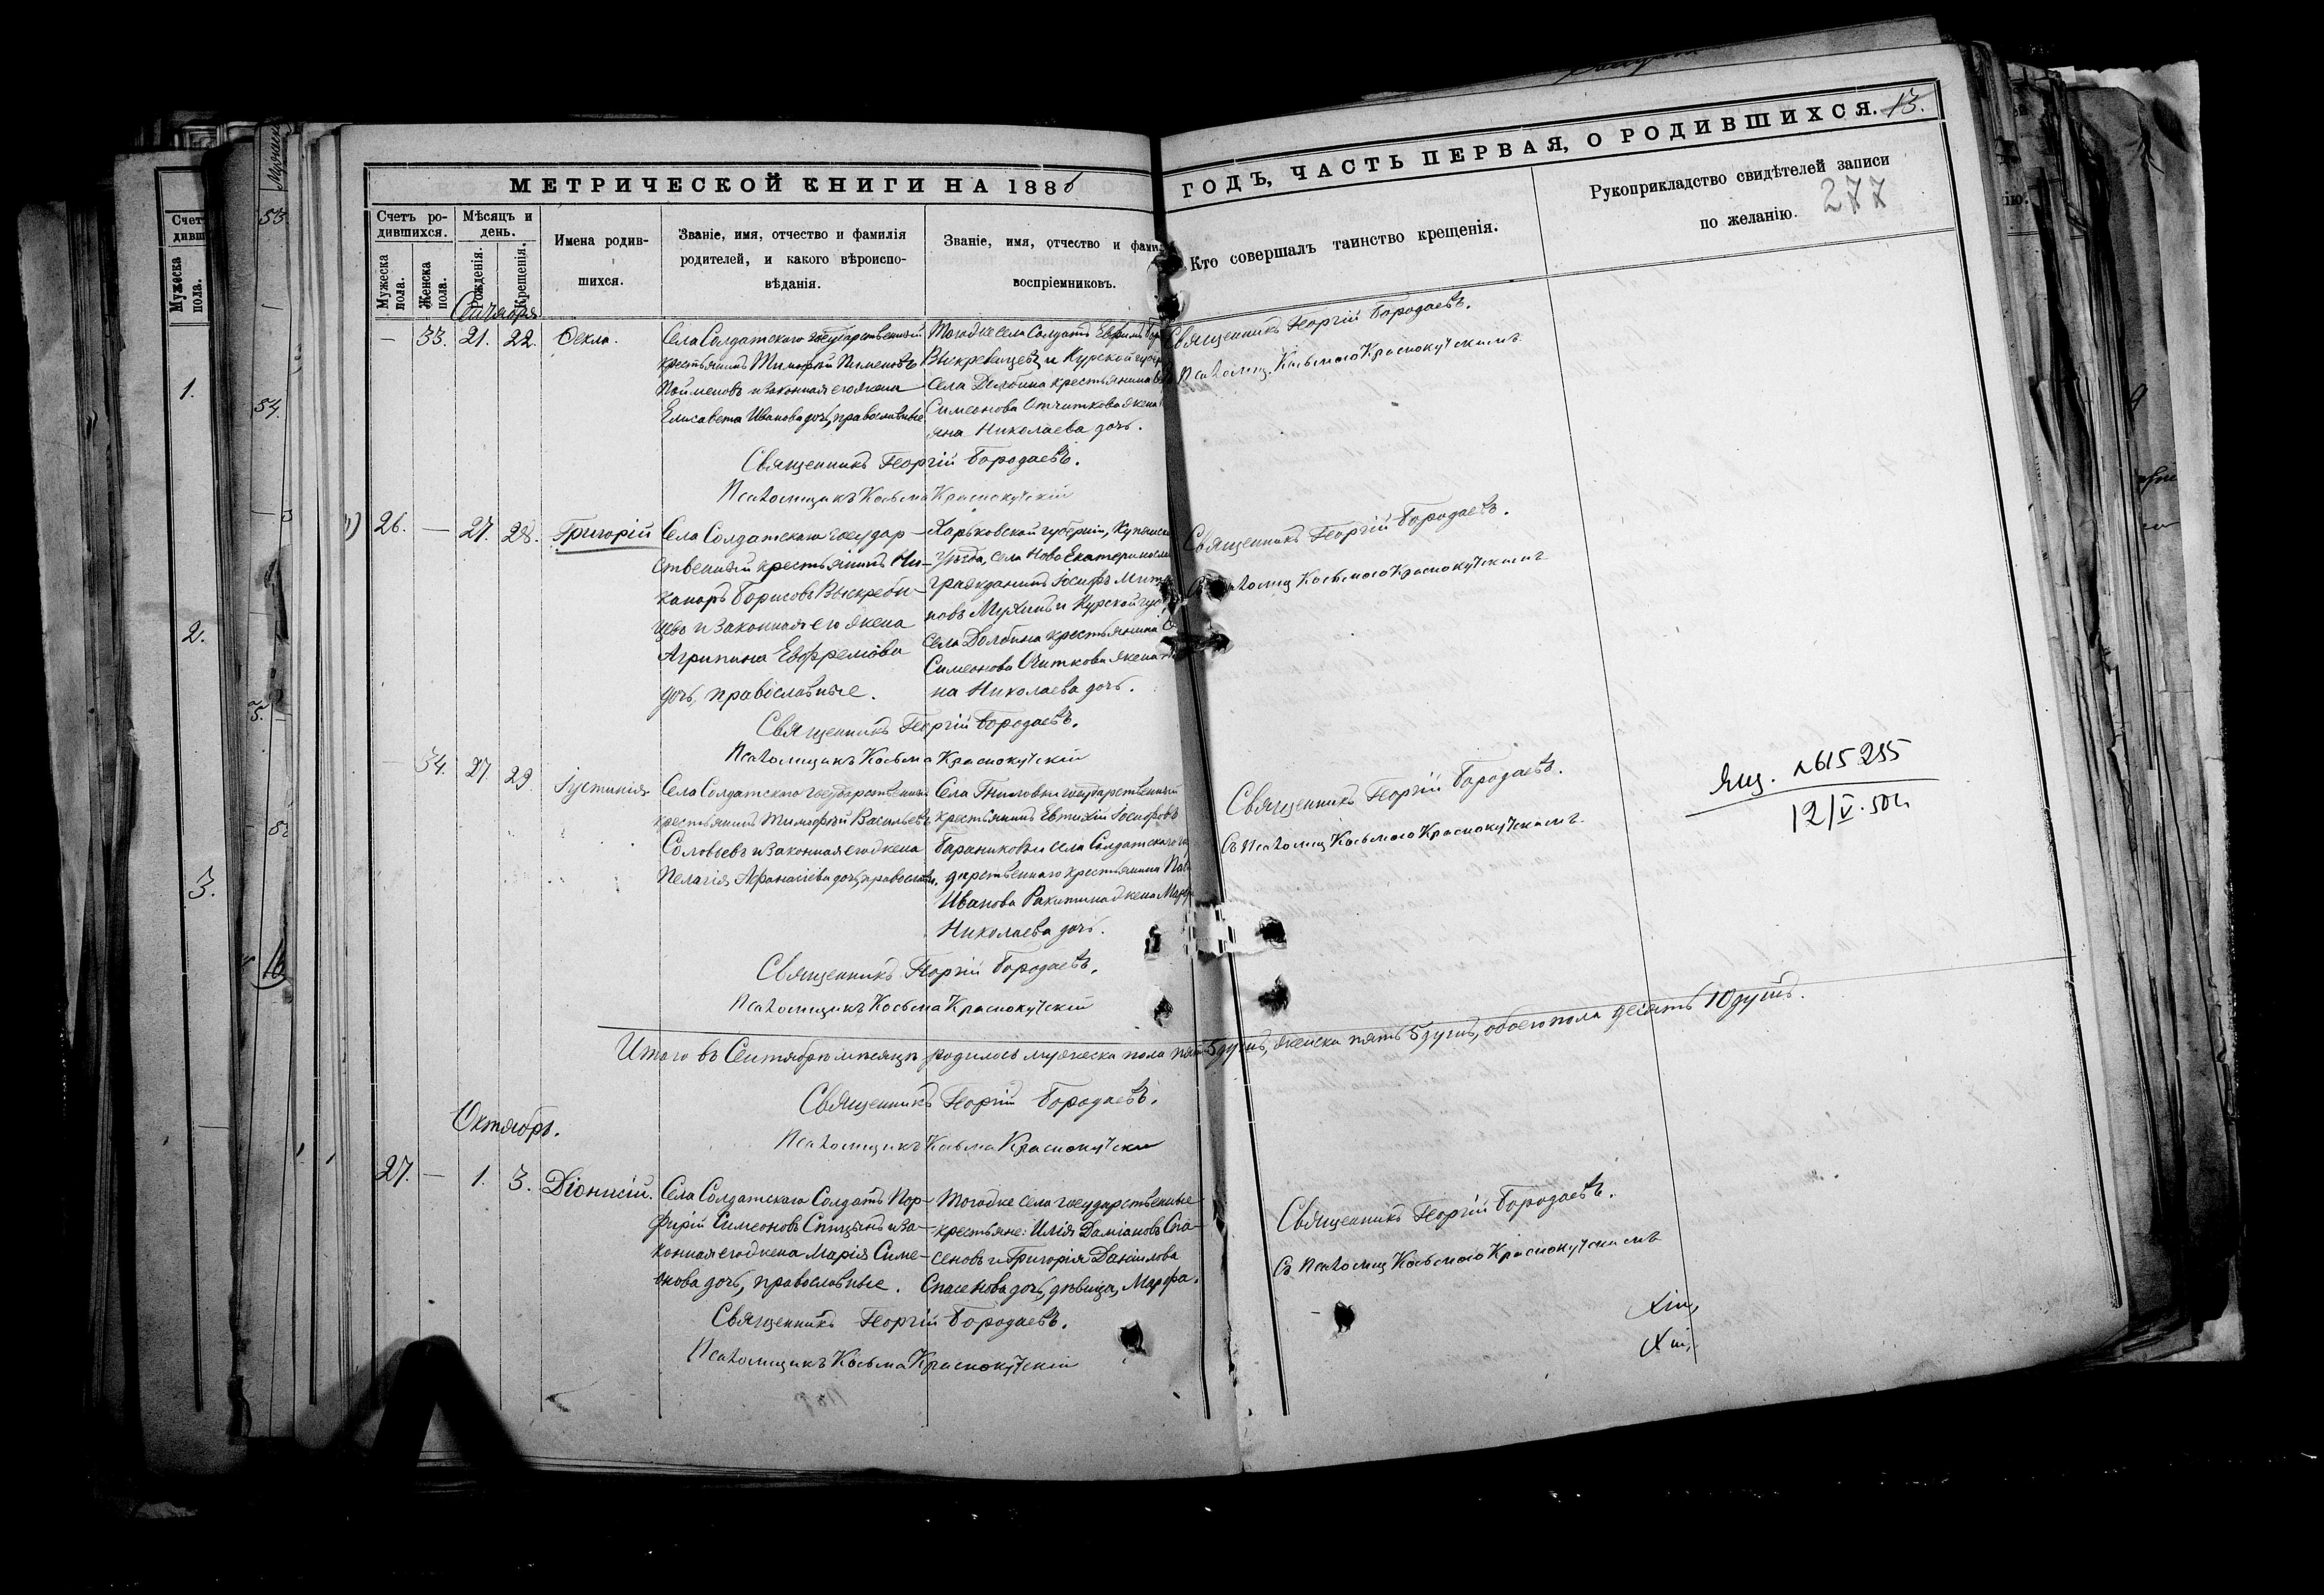 МЕТРИЧЕСКОЙ КНИГИ НА 1886
ГОДЪ, ЧАСТЬ ПЕРВАЯ, О РОДИВШИХСЯ. 13.
Счетъ ро-
дившихся.
Мужеска пола.
Женска пола.
Мѣсяцъ и
день.
Рожденія.
Крещенія.
Имена родив-
шихся.
Званіе, имя, отчество и фамилія
родителей, и какого вѣроиспо-
вѣданія.
Званіе, имя, отчество и фами
воспріемниковъ.
Кто совершалъ таинство крещенія.
Рукоприкладство свидѣтелей записи
по желанію. 277
Сентября
— 33. 21. 22. Ѳекла.
Села Солдатскаго государственный
крестьянинъ Тимофей Пименовъ
Пойменовъ и законная его жена
Елисавета Иванова дочь, православные
Тогоже села Солдатъ Ефимъ
Выкребенцевъ и Курской губер
села Долбина крестьянина
Симеонова жена
яна Николаева дочь.
Священникъ Георгій Бородаевъ.
Псаломщ. Косьмою Краснокутскимъ
Священникъ Георгій Бородаевъ.
Псаломщикъ Косьма Краснокутскій
26. — 27. 28. Григорій
Села Солдатскаго государ-
ственный крестьянинъ Ни-
каноръ Борисовъ Выскреби-
цевъ и законная его жена
Агрипина Евфремова
дочь, православные.
Харьковской губерніи, Купянск
Уѣзда, села Ново Екатериносла
гражданинъ Іосифъ Митр
новъ Мухинъ и Курской губ
села Долбина крестьянина
Симеонова Очиткова жена
на Николаева дочь.
Священникъ Георгій Бородаевъ.
Съ Псаломщ Косьмою Краснокутскимъ
Священникъ Георгій Бородаевъ.
Псаломщикъ Косьма Краснокутскій
— 34. 27. 29. Іустинія
Села Солдатскаго государственный
крестьянинъ Тимофей Васильевъ
Соловьевъ и законная его жена
Пелагія Афанасіева дочь, православн.
Села Гниловки государственный
крестьянинъ Евтихій Іосифовъ
Бараниковъ и села Солдатскаго го
дарственнаго крестьянина
Иванова Ракитина жена Марѳ
Николаева дочь.
Священникъ Георгій Бородаевъ.
Съ Псаломщ Косьмою Краснокутскимъ
Ящ. №615255
12/V·50г.
Священникъ Георгій Бородаевъ.
Псаломщикъ Косьма Краснокутскій
Итого въ Сентябрѣ мѣсяцѣ родилось мужеска пола пять 5 душъ, женска пять 5 душъ, обоего пола десять 10 душъ.
Священникъ Георгій Бородаевъ.
Псаломщикъ Косьма Краснокутскій
Октябрь.
27. — 1. 3. Діонисій.
Села Солдатскаго Солдатъ Пор-
фирій Симеоновъ Спицынъ и за-
конная его жена Марія Симе-
онова дочь, православные.
Тогоже села государственные
крестьяне: Илія Даміановъ Спа-
сеновъ и Григорія Даніилова
Спасенова дочь, дѣвица, Марѳа.
Священникъ Георгій Бородаевъ.
Съ Псаломщ Косьмою Краснокутскимъ
Священникъ Георгій Бородаевъ.
Псаломщикъ Косьма Краснокутскій